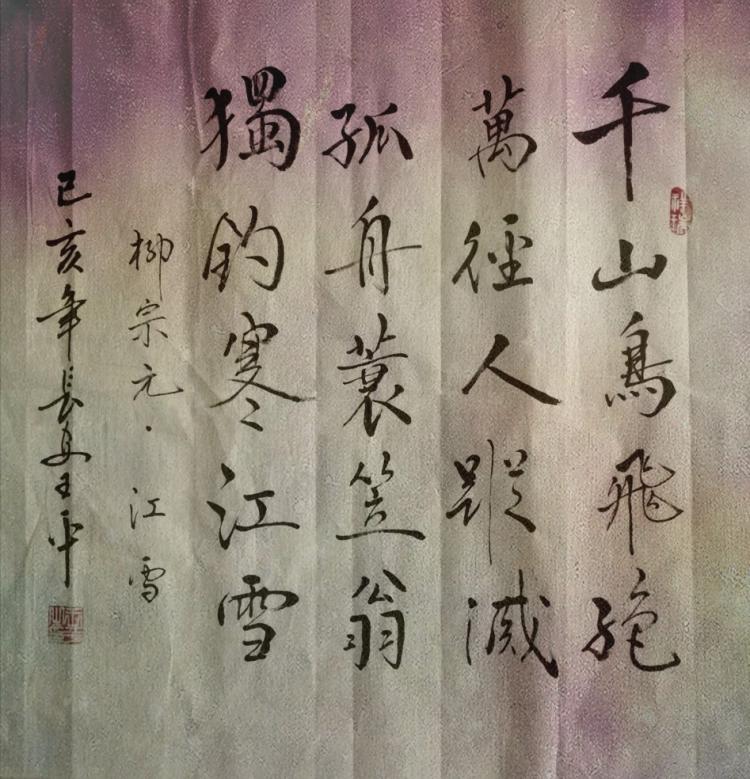 千山鳥飛絕
萬徑人蹤滅
孤舟蓑笠翁
獨釣寒江雪
柳宗元·江雪
己亥年長安王平